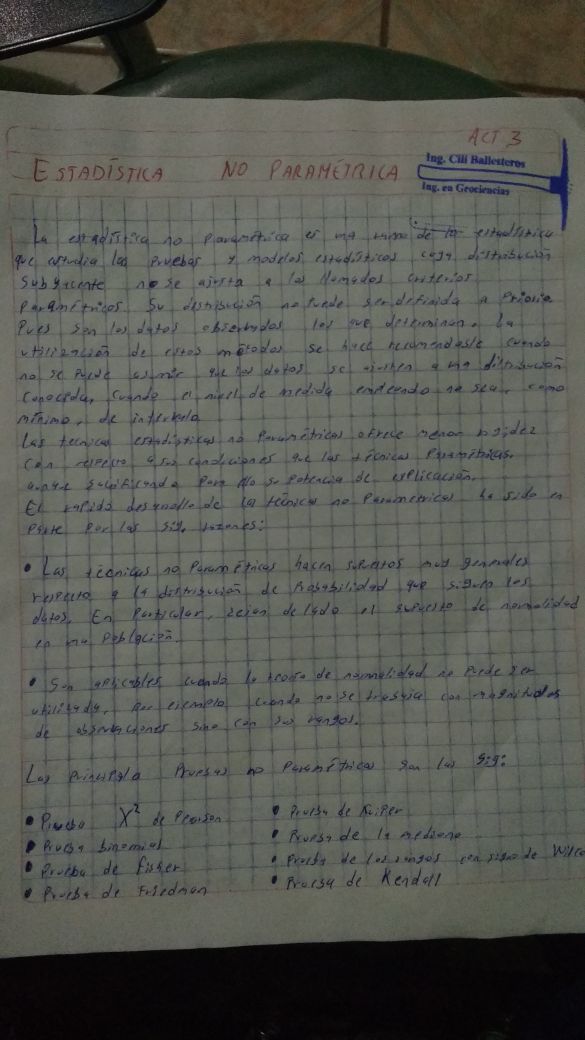 ACT 3
ESTADÍSTICA NO PARAMÉTRICA
Ing. Cili Ballesteros
Ing. en Geociencias
La estadística no Paramétrica es una rama de la estadística
que estudia las Pruebas y modelos estadísticos cuya distribución
Subyacente no se ajusta a los llamados criterios
Paramétricos. Su distribución no Puede ser definida a Priori
Pues son los datos observados los que determinan. La
utilización de estos métodos se hace recomendable cuando
no se Puede asumir que los datos se ajusten a una distribución
Conocida, Cuando el nivel de medida empleado no sea, como
mínimo, de intervalo.
Las tecnicas estadísticas no Paramétricas ofrece menor rigidez
Con respecto a sus condiciones que las técnicas Paramétricas.
aunque Sacrificando Para ello su Potencia de explicación.
El rapido desarrollo de las técnicas no Paramétricas ha sido en
Parte Por las sig. razones:
• Las técnicas no Paramétricas hacen supuestos muy generales
respecto a la distribución de Probabilidad que siguen los
datos. En Particular, dejan de lado el supuesto de normalidad
en una Población.
• Son aplicables cuando la teoría de normalidad no Puede ser
utilizada, Por ejemplo cuando no se trabaja con magnitudes
de observaciones sino con sus rangos.
Las Principala Pruebas no Paramétricas son las sig:
• Prueba X² de Pearson
• Prueba binomial
• Prueba de Fisher
• Prueba de Friedman
• Prueba de Kuiper
• Prueba de la mediana
• Prueba de los rangos con signo de Wilco
• Prueba de Kendall